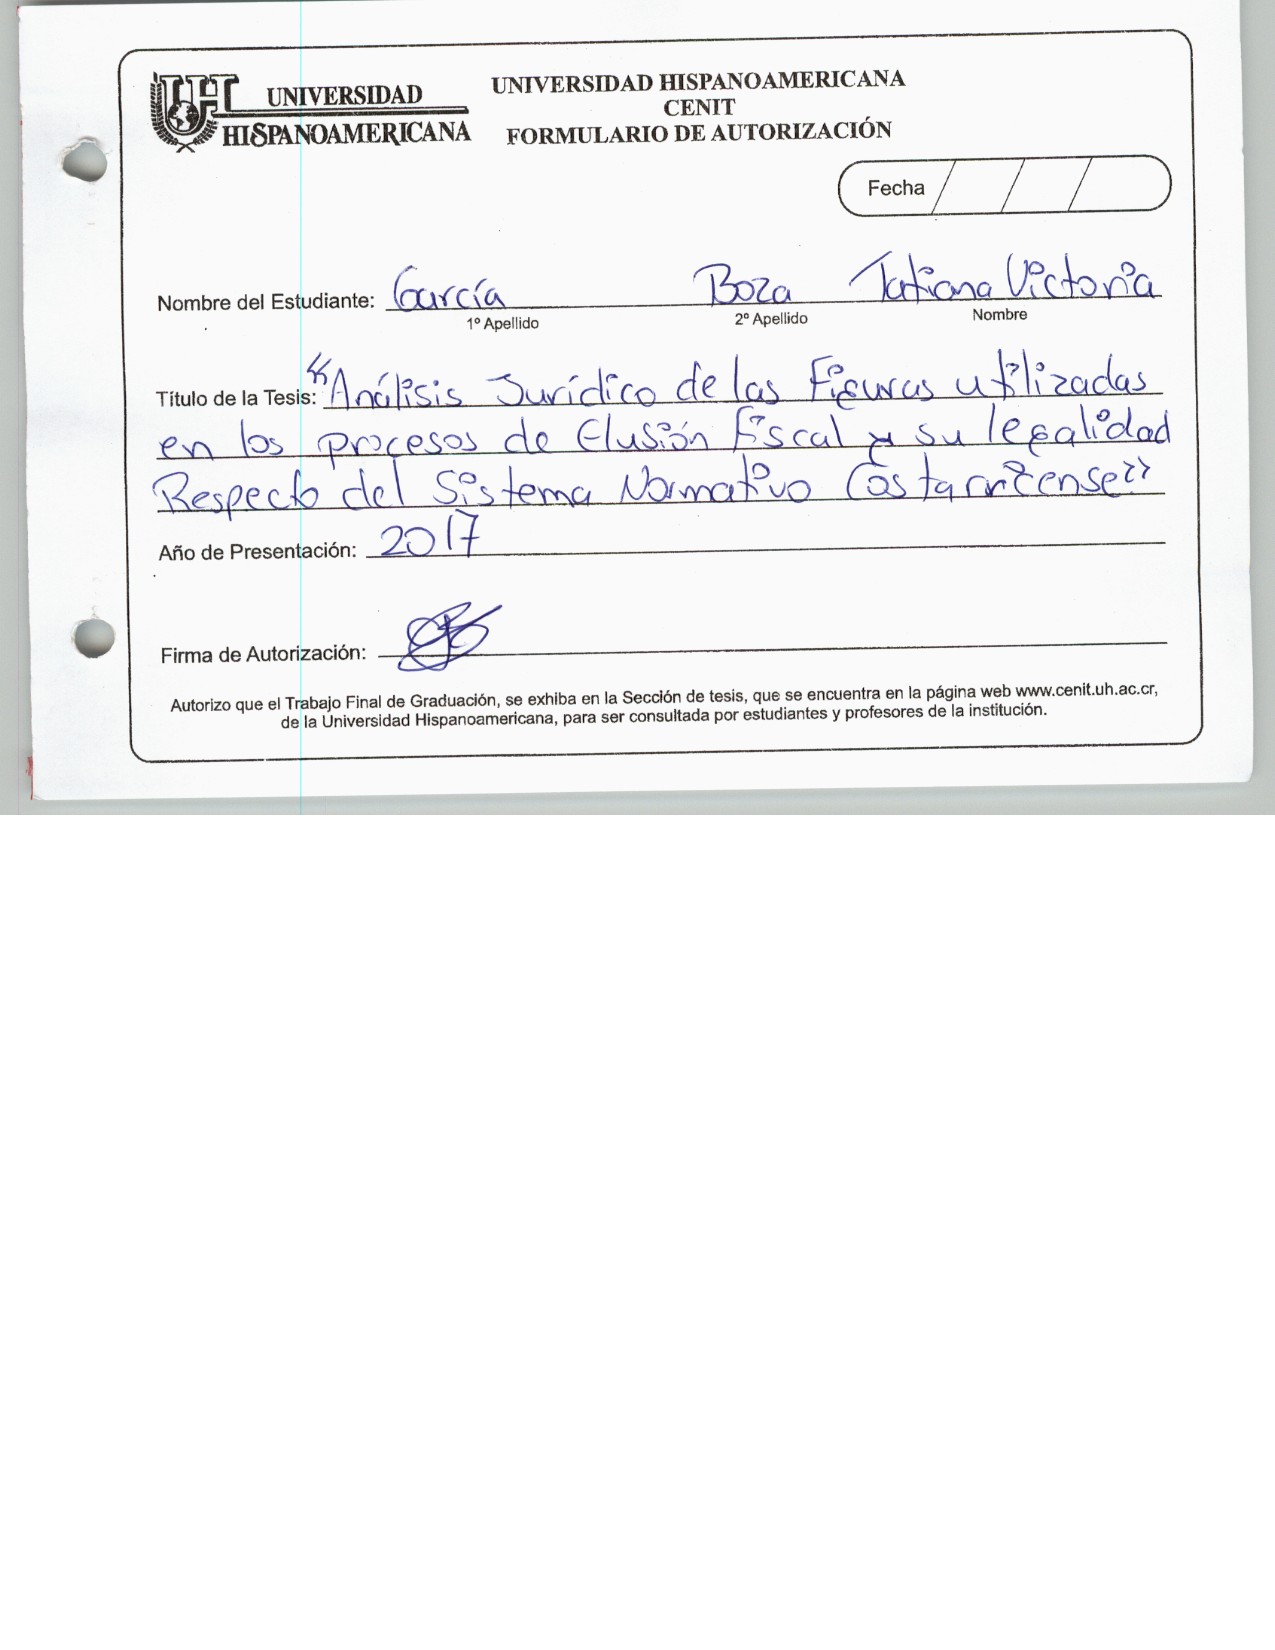 UNIVERSIDAD
HISPANOAMERICANA
UNIVERSIDAD HISPANOAMERICANA
CENIT
FORMULARIO DE AUTORIZACIÓN
Fecha
Nombre del Estudiante: García Boza Tatiana Victoria
1º Apellido 2º Apellido Nombre
Título de la Tesis: "Análisis Jurídico de las Figuras utilizadas
en los procesos de Elusión Fiscal y su legalidad
Respecto del Sistema Normativo Costarricense"
Año de Presentación: 2017
Firma de Autorización:
Autorizo que el Trabajo Final de Graduación, se exhiba en la Sección de tesis, que se encuentra en la página web www.cenit.uh.ac.cr,
de la Universidad Hispanoamericana, para ser consultada por estudiantes y profesores de la institución.